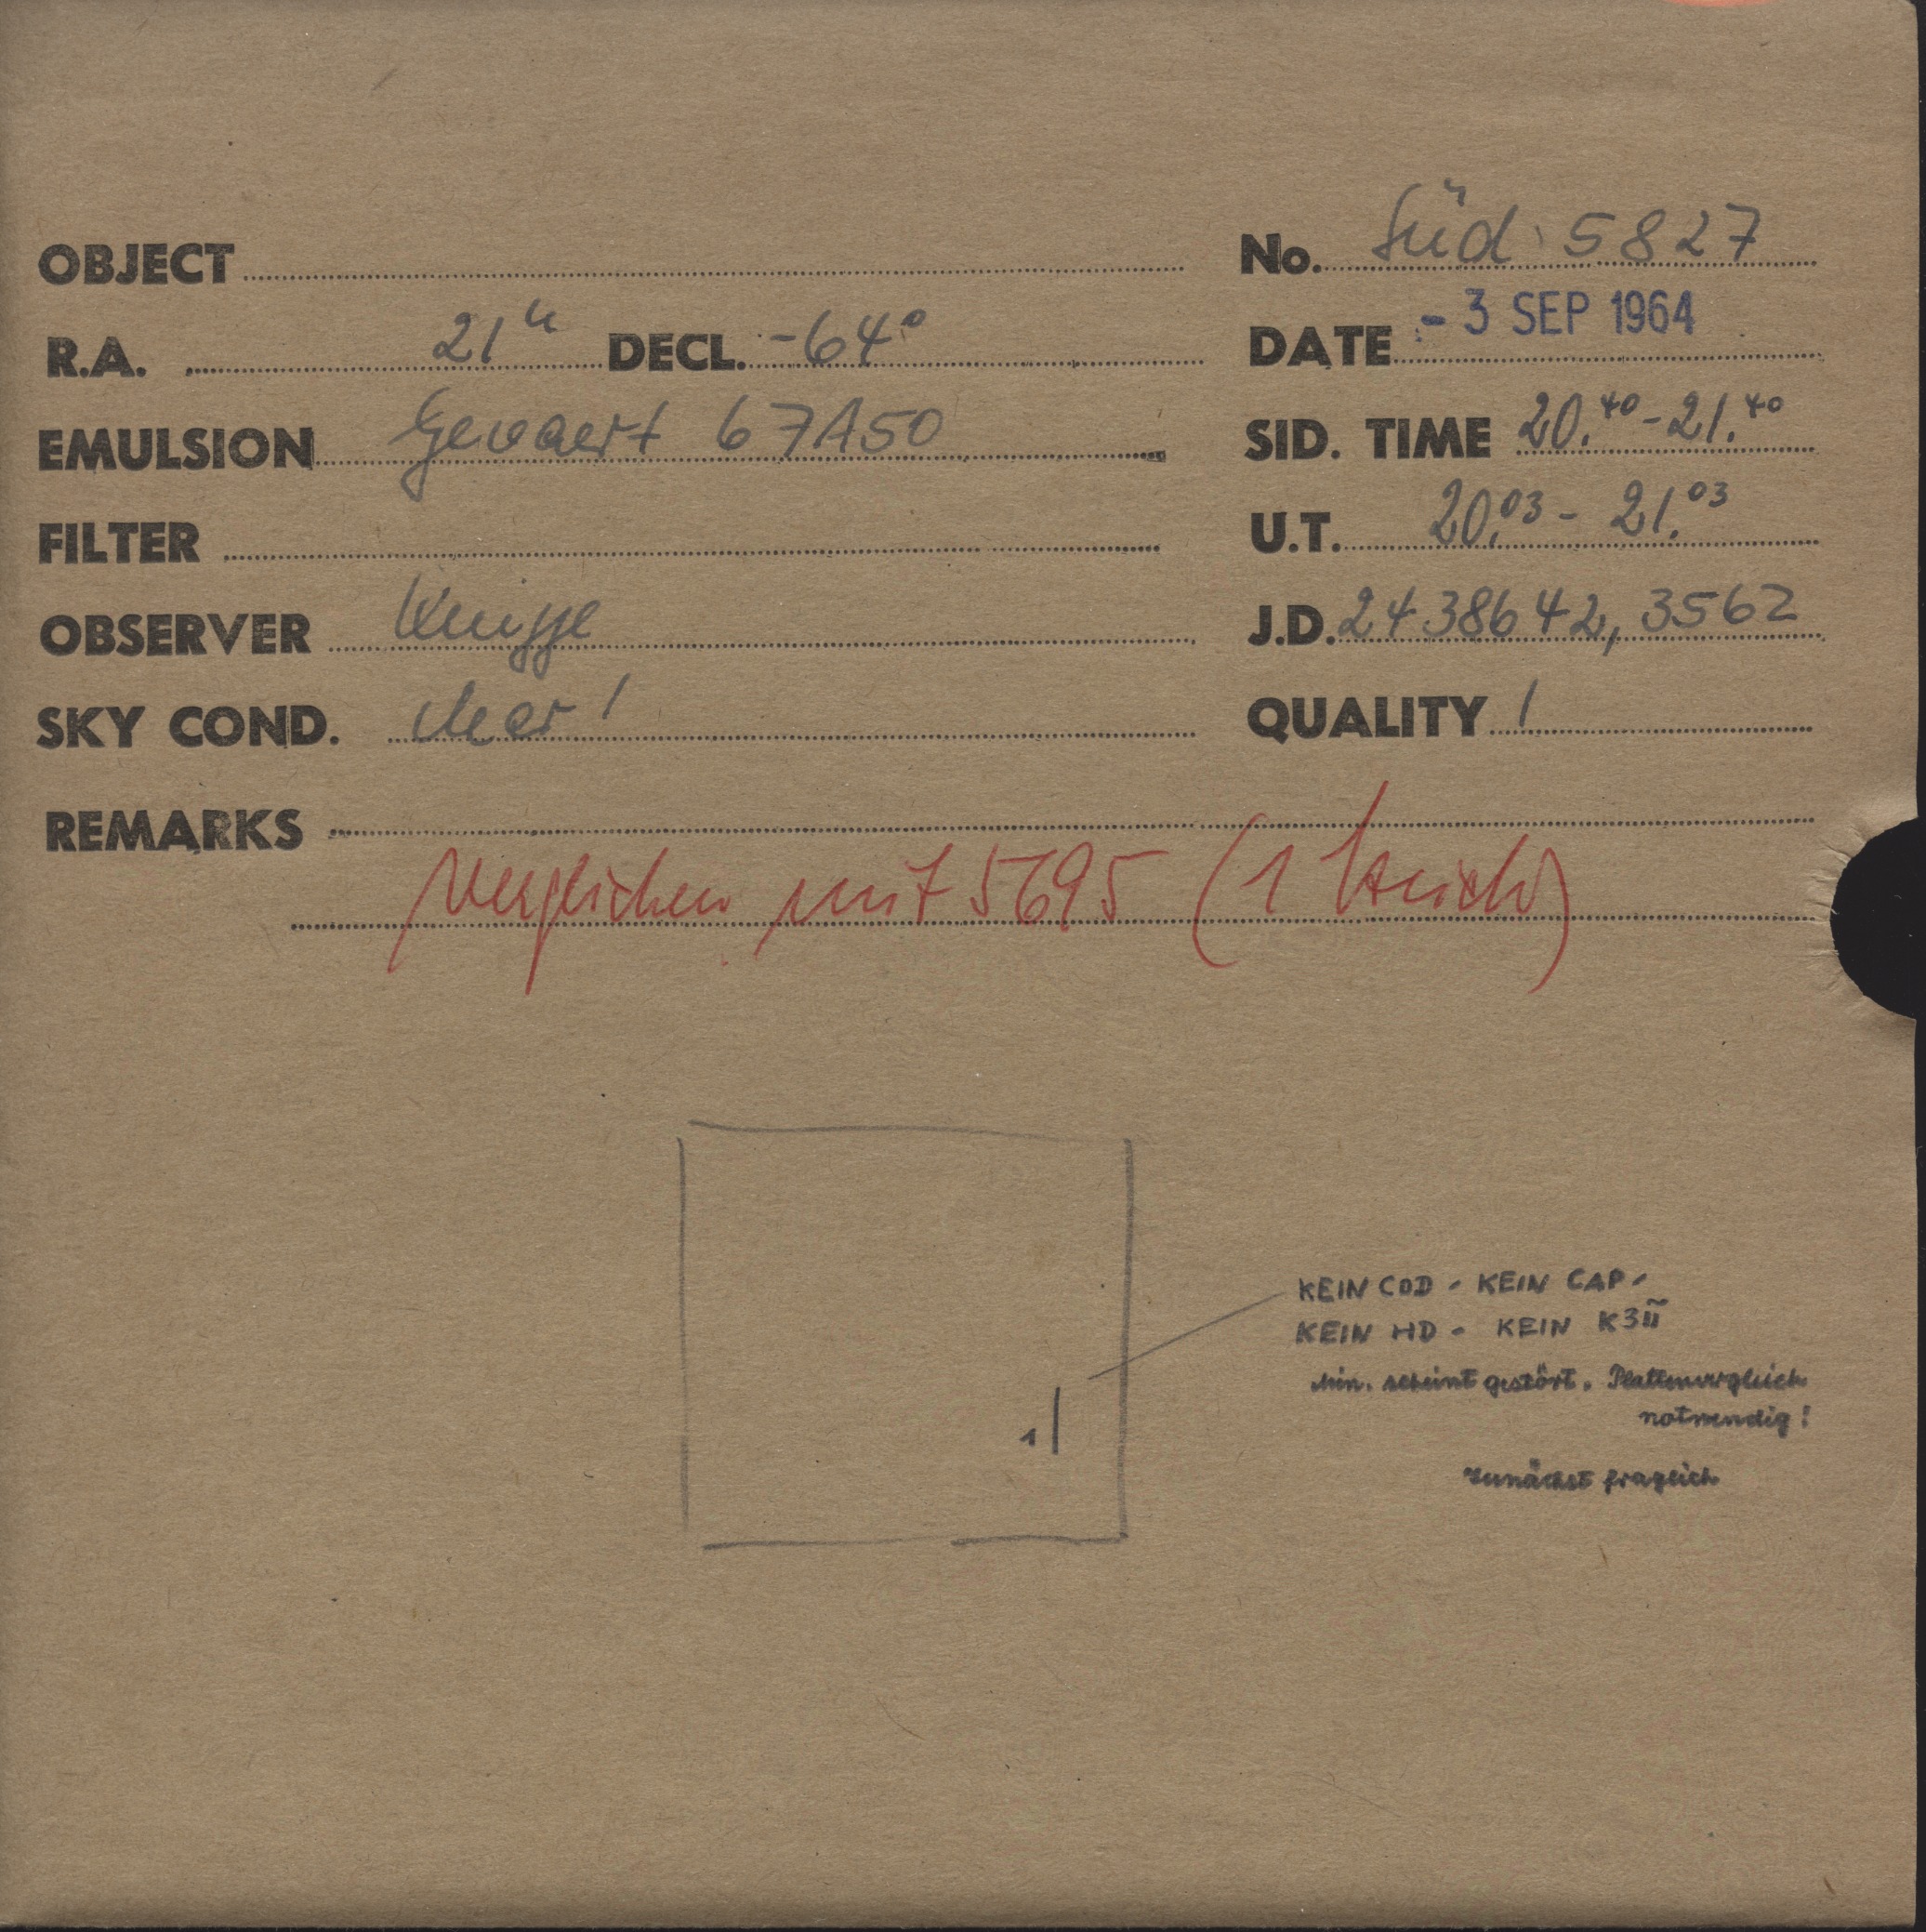 OBJECT No. Süd 5827
R.A. 21h DECL. -64°
DATE - 3 SEP 1964
EMULSION Gevaert 67A50
SID. TIME 20.40 - 21.40
FILTER
U.T. 20.03 - 21.03
OBSERVER Knigge
J.D. 2438642,3562
SKY COND. clear!
QUALITY 1
REMARKS
verglichen mit 5695 (1 Strich)
KEIN COD - KEIN CAP -
KEIN HD - KEIN K3Ü
Min. scheint gestört. Plattenvergleich
notwendig!
zunächst fraglich
1